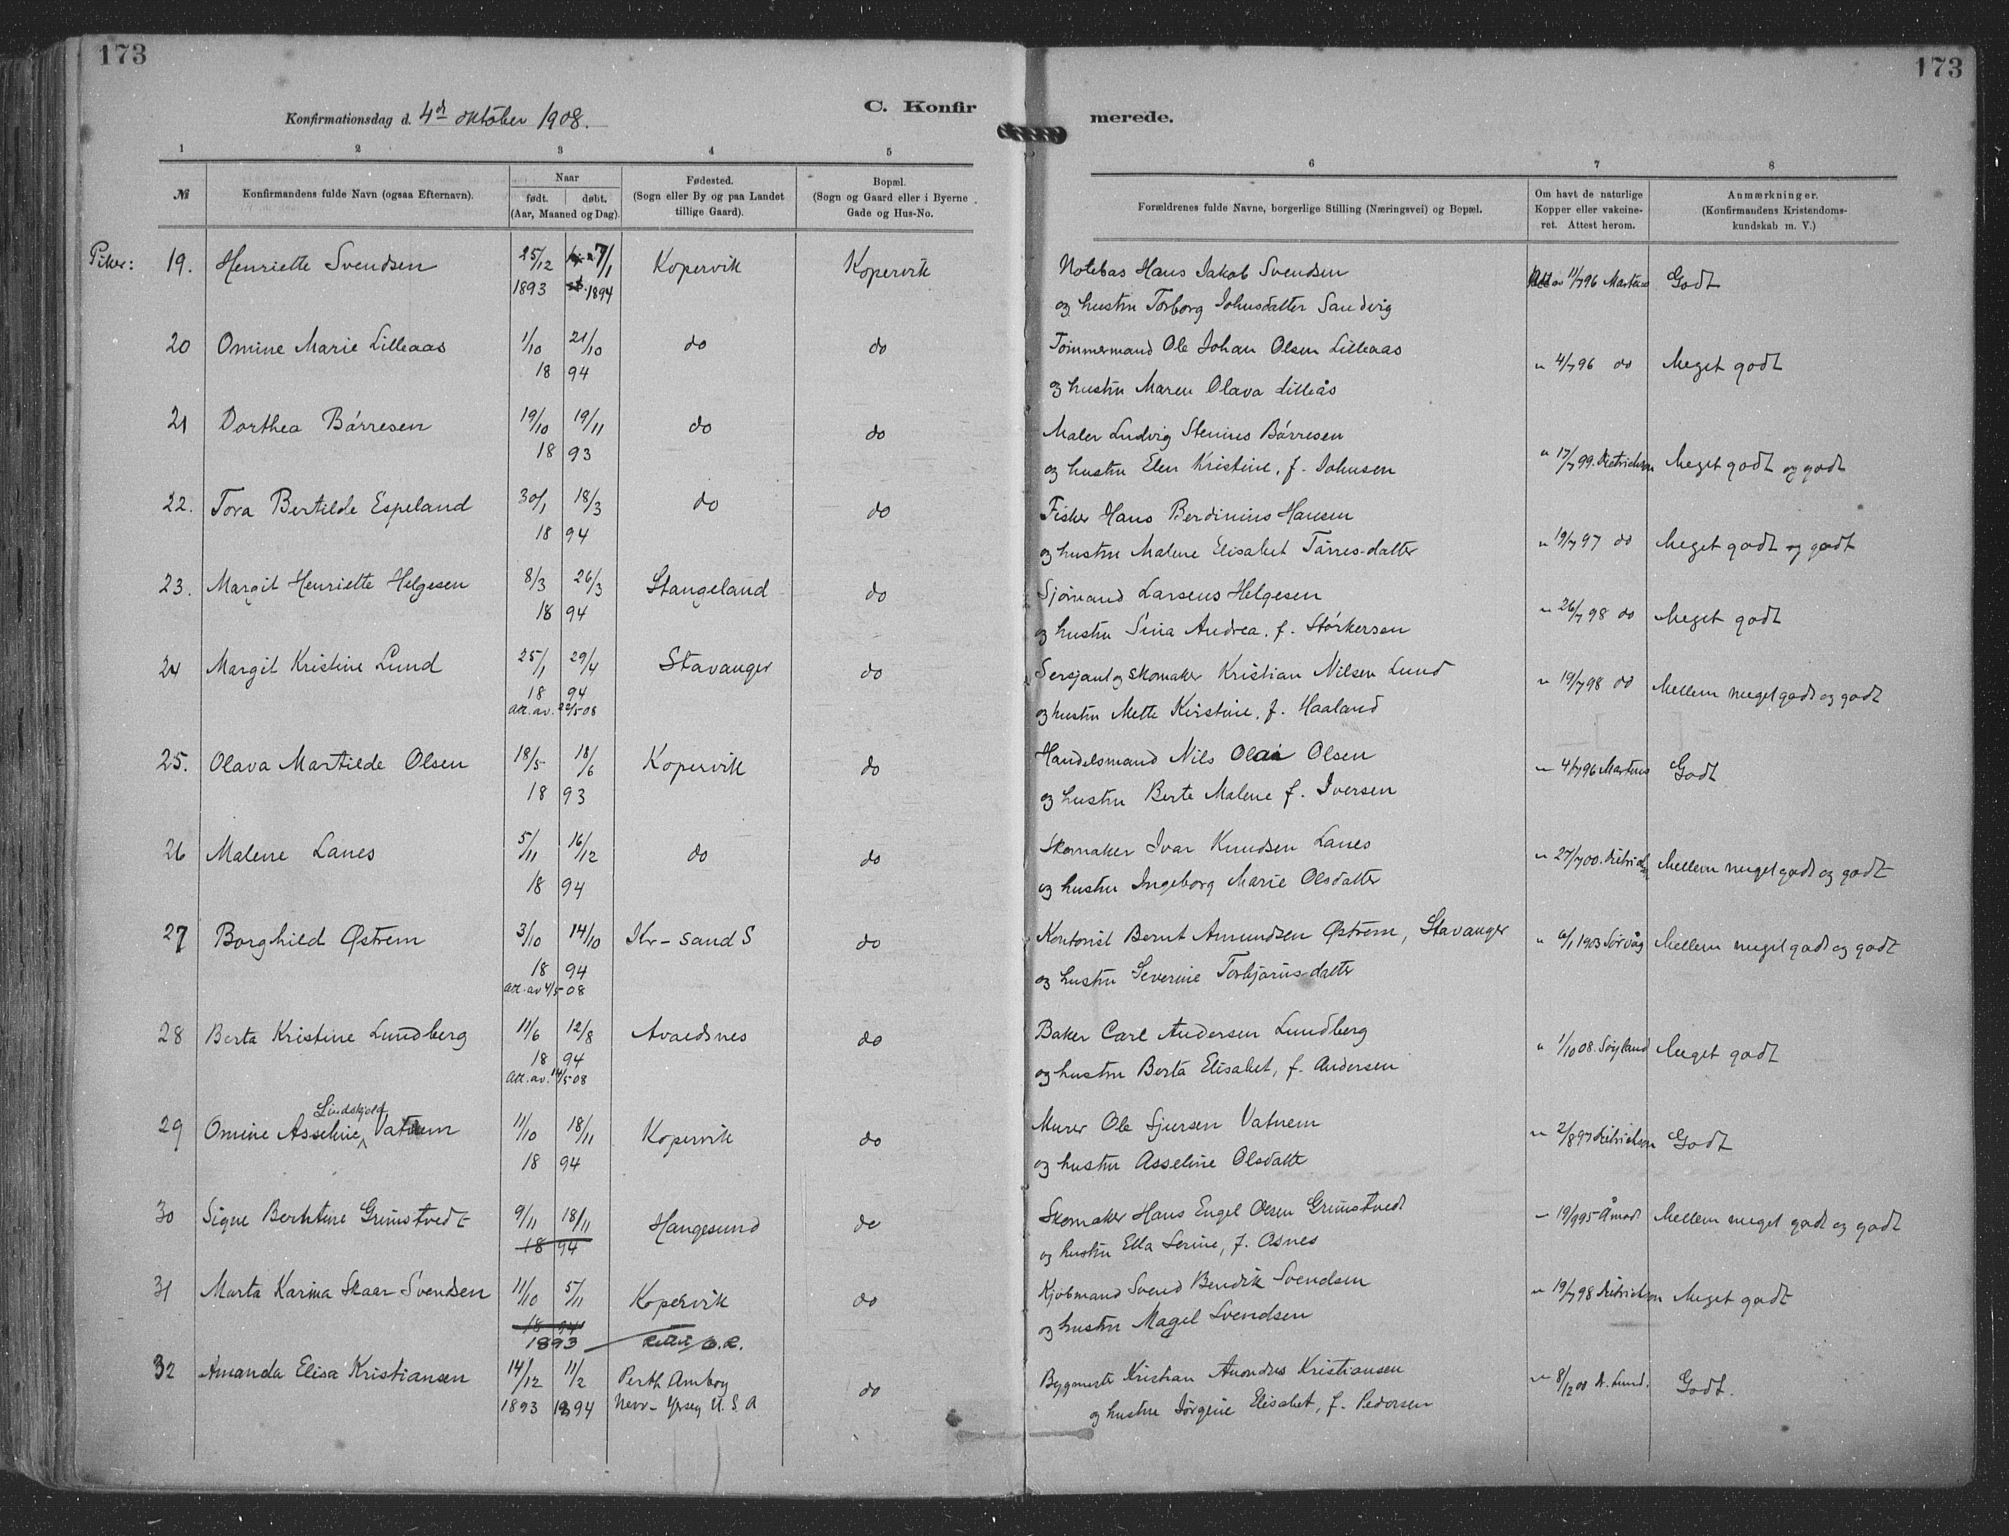 173
173
Konfirmationsdag d. 4de oktober 1908.
C. Konfir
merede.
1 2 3 4 5 6 7 8
№
Konfirmandens fulde Navn (ogsaa Efternavn).
Naar
født. døbt.
(Aar, Maaned og Dag).
Fødested.
(Sogn eller By og paa Landet
tillige Gaard).
Bopæl.
(Sogn og Gaard eller i Byerne
Gade og Hus-No.
Forældrenes fulde Navne, borgerlige Stilling (Næringsvei) og Bopæl.
Om havt de naturlige
Kopper eller vakcine-
ret. Attest herom.
Anmærkninger.
(Konfirmandens Kristendoms-
kundskab m. V.)
Piker: 19. Henriette Svendsen 25/12 7/1 Kopervik Kopervik Notebas Hans Jakob Svendsen Att av 11/7 96 Martens Godt
1893 1894 og hustru Torborg Johnsdatter Sandvig
20 Omine Marie Lilleaas 1/10 21/10 do do Tømmermand Ole Johan Olsen Lilleaas " 4/7 96 do Meget godt
18 94 og hustru Maren Olava Lilleås
21 Dorthea Børresen 19/10 19/11 do do Maler Ludvig Stenius Børresen " 17/7 99. Dietrichson Meget godt og godt
18 93 og hustru Elen Kristine, f. Johnsen
22. Tora Bertilde Espeland 30/1 18/3 do do Fisker Hans Berdinius Hansen " 19/7 97 do Meget godt og godt
18 94 og hustru Malene Elisabet Tørres-datter
23. Margit Henriette Helgesen 8/3 26/3 Stangeland do Sjømand Larsens Helgesen " 26/7 98 do Meget godt
18 94 og hustru Sina Andrea, f. Størkersen
24 Margit Kristine Lund 25/1 29/4 Stavanger do Sersjant og skomaker Kristian Nilsen Lund " 19/7 98 do Mellem meget godt og godt
18 94 og hustru Mette Kirstine, f. Haaland
Att. av. 22/5-08
25. Olava Martilde Olsen 18/5 18/6 Kopervik do Handelsmand Nils Olai Olsen " 4/7 96 Martens Godt
18 93 og hustru Berte Malene f. Iversen
26 Malene Lanes 5/11 16/12 do do Skomaker Ivar Knudsen Lanes " 27/7 00. Dietrichson Mellem meget godt og godt
18 94 og hustru Ingeborg Marie Olsdatter
27 Borghild Østrem 3/10 14/10 Kr-sand S do Kontorist Bernt Amundsen Østrem, Stavanger " 6/1 1903 Sørvåg Mellem meget godt og godt
18 94 og hustru Severine Torbjørnsdatter
Att. av 4/5-08
28 Berta Kristine Lundberg 11/6 12/8 Avaldsnes do Baker Carl Andersen Lundberg " 1/10 08. Søyland Meget godt
18 94 og hustru Berta Elisabet, f. Andersen
Att. av. 14/5-08
Lindskjold
29 Omine Asseline Vatnem 11/10 18/11 Kopervik do Murer Ole Sjursen Vatnem " 2/8 97 Dietrichson Godt
18 94 og hustru Asseline Olsdatter
30 Signe Berntine Grimstvedt 9/11 18/11 Haugesund do Skomaker Hans Engel Olsen Grimstvedt " 19/9 95 Åmodt Mellem meget godt og godt
18 94 og hustru Ella Serine, f. Asnes
31 Marta Karina Skaar Svendsen 11/10 5/11 Kopervik do Kjøbmand Svend Bendik Svendsen " 19/7 98 Dietrichson Meget godt
18 94 og hustru Magel Svendsen
1893 Rettet
32 Amanda Elisa Kristiansen 14/12 11/2 Perth Amboy do Bygmester Kristian Amondus Kristiansen " 8/12 00 K. Lund. Godt.
1893 1894 New-Yersey U.S.A og hustru Jørgine Elisabet, f. Pedersen